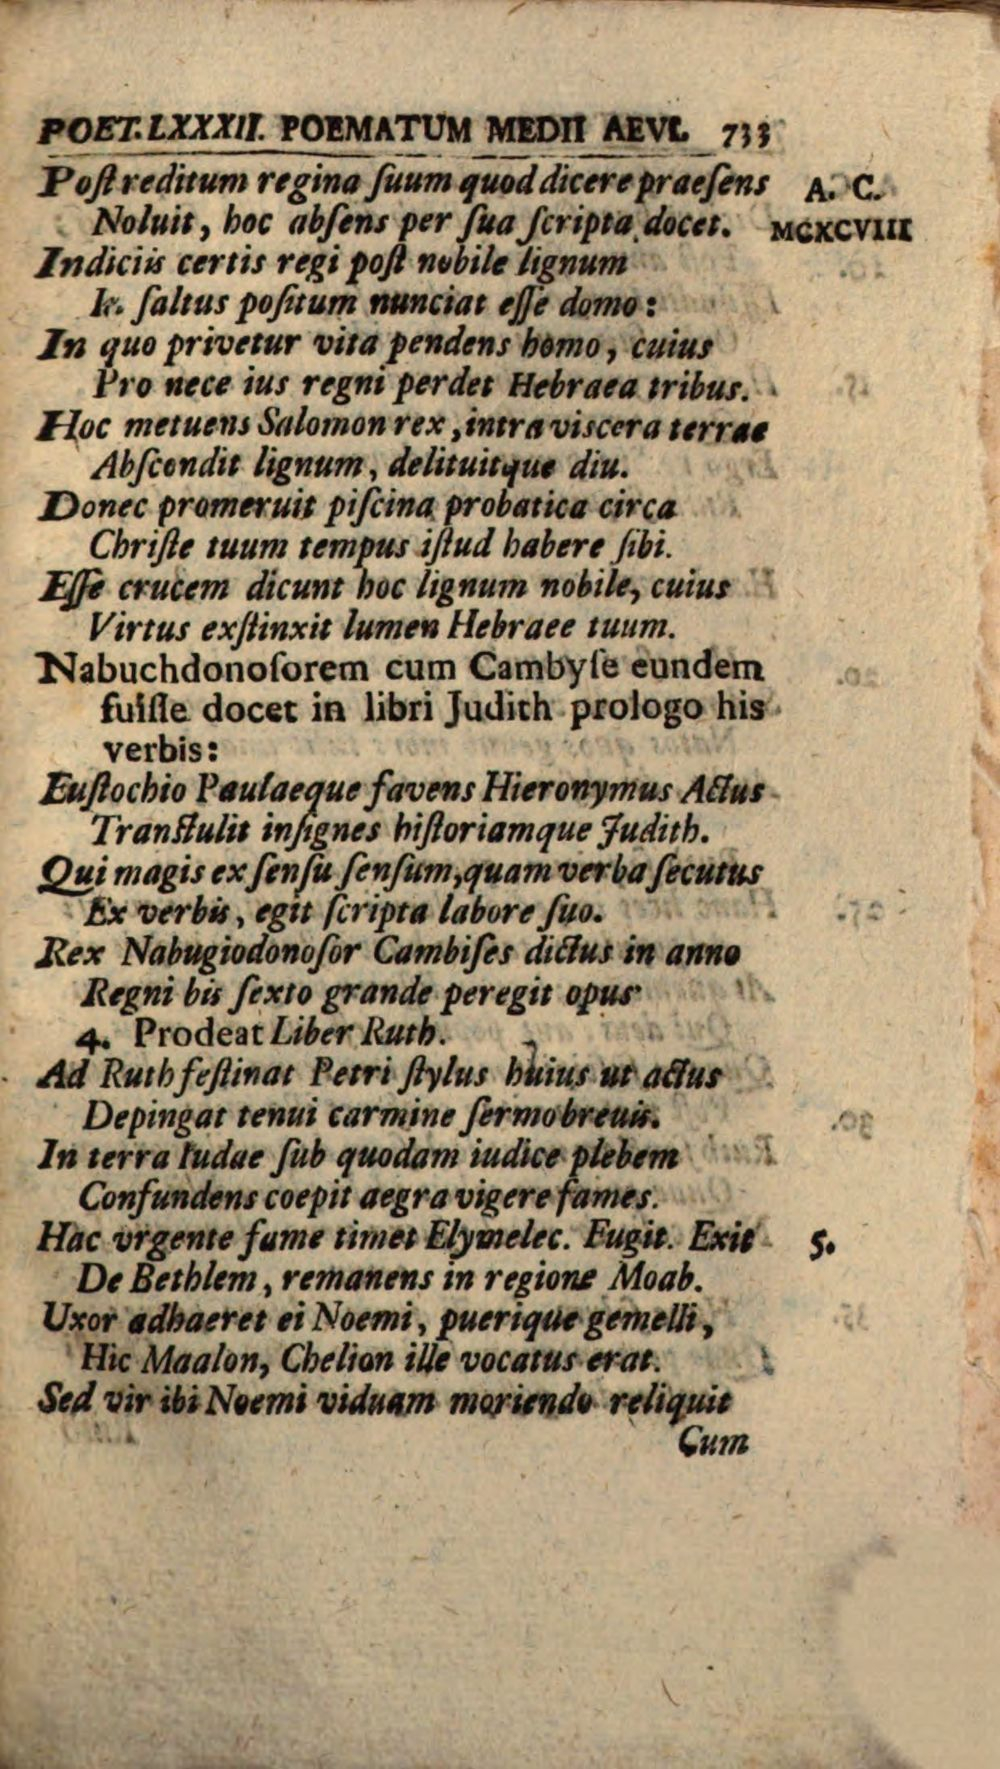 POET. LXXXII. POEMATUM MEDII AEVI. 733
Poſt reditum regina ſuum quod dicere praeſens A. C.
Noluit, hoc abſens per ſua ſcripta docet. MCXCVIII
Indiciis certis regi poſt nobile lignum
ſaltus poſitum nunciat eſſe domo:
In quo privetur vita pendens homo, cuius
Pro nece ius regni perdet Hebraea tribus.
Hoc metuens Salomon rex, intra viscera terrae
Abſcondit lignum, delituitque diu.
Donec promeruit piſcina probatica circa
Chriſte tuum tempus iſtud habere ſibi.
Eſſe crucem dicunt hoc lignum nobile, cuius
Virtus exſtinxit lumen Hebraee tuum.
Nabuchdonoſorem cum Cambyſe eundem
fuiſſe docet in libri Judith prologo his
verbis:
Euſtochio Paulaeque favens Hieronymus Actus
Tranſtulit inſignes hiſtoriamque Judith.
Qui magis ex ſenſu ſenſum, quam verba ſecutus
Ex verbis, egit ſcripta labore ſuo.
Rex Nabugiodonoſor Cambiſes dictus in anno
Regni bis ſexto grande peregit opus
4. Prodeat Liber Ruth.
Ad Ruth feſtinat Petri ſtylus huius ut actus
Depingat tenui carmine ſermo breuis.
In terra Iudae ſub quodam iudice plebem
Confundens coepit aegra vigere fames.
Hac vrgente fame timet Elymelec. Fugit. Exit 5.
De Bethlem, remanens in regione Moab.
Uxor adhaeret ei Noemi, puerique gemelli,
Hic Maalon, Chelion ille vocatus erat.
Sed vir ibi Noemi viduam moriendo reliquit
Cum